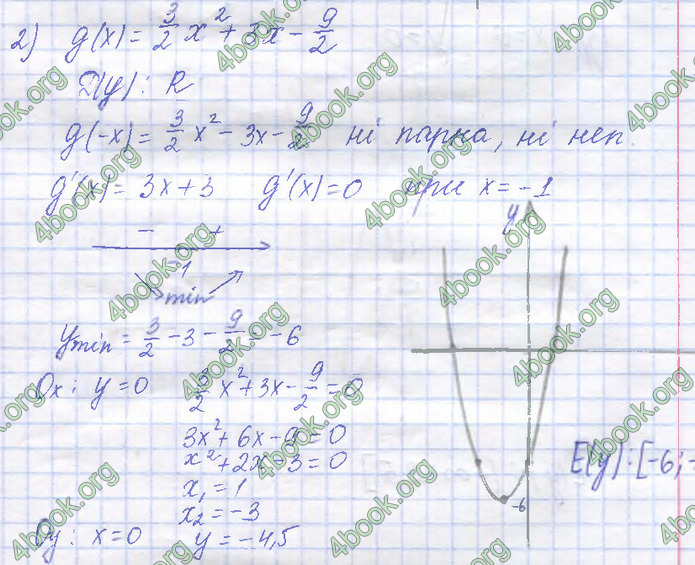 2) g(x) = 3/2 x² + 3x - 9/2
D(y): R
g(-x) = 3/2 x² - 3x - 9/2 ні парна, ні неп.
g'(x) = 3x + 3 g'(x) = 0 при x = -1
- +
-1
min
y min = 3/2 - 3 - 9/2 = -6
Ox: y = 0 3/2 x² + 3x - 9/2 = 0
3x² + 6x - 9 = 0
x² + 2x - 3 = 0
x₁ = 1
x₂ = -3
Oy: x = 0 y = -4,5
y
-6
E(y): [-6; -
4book.org